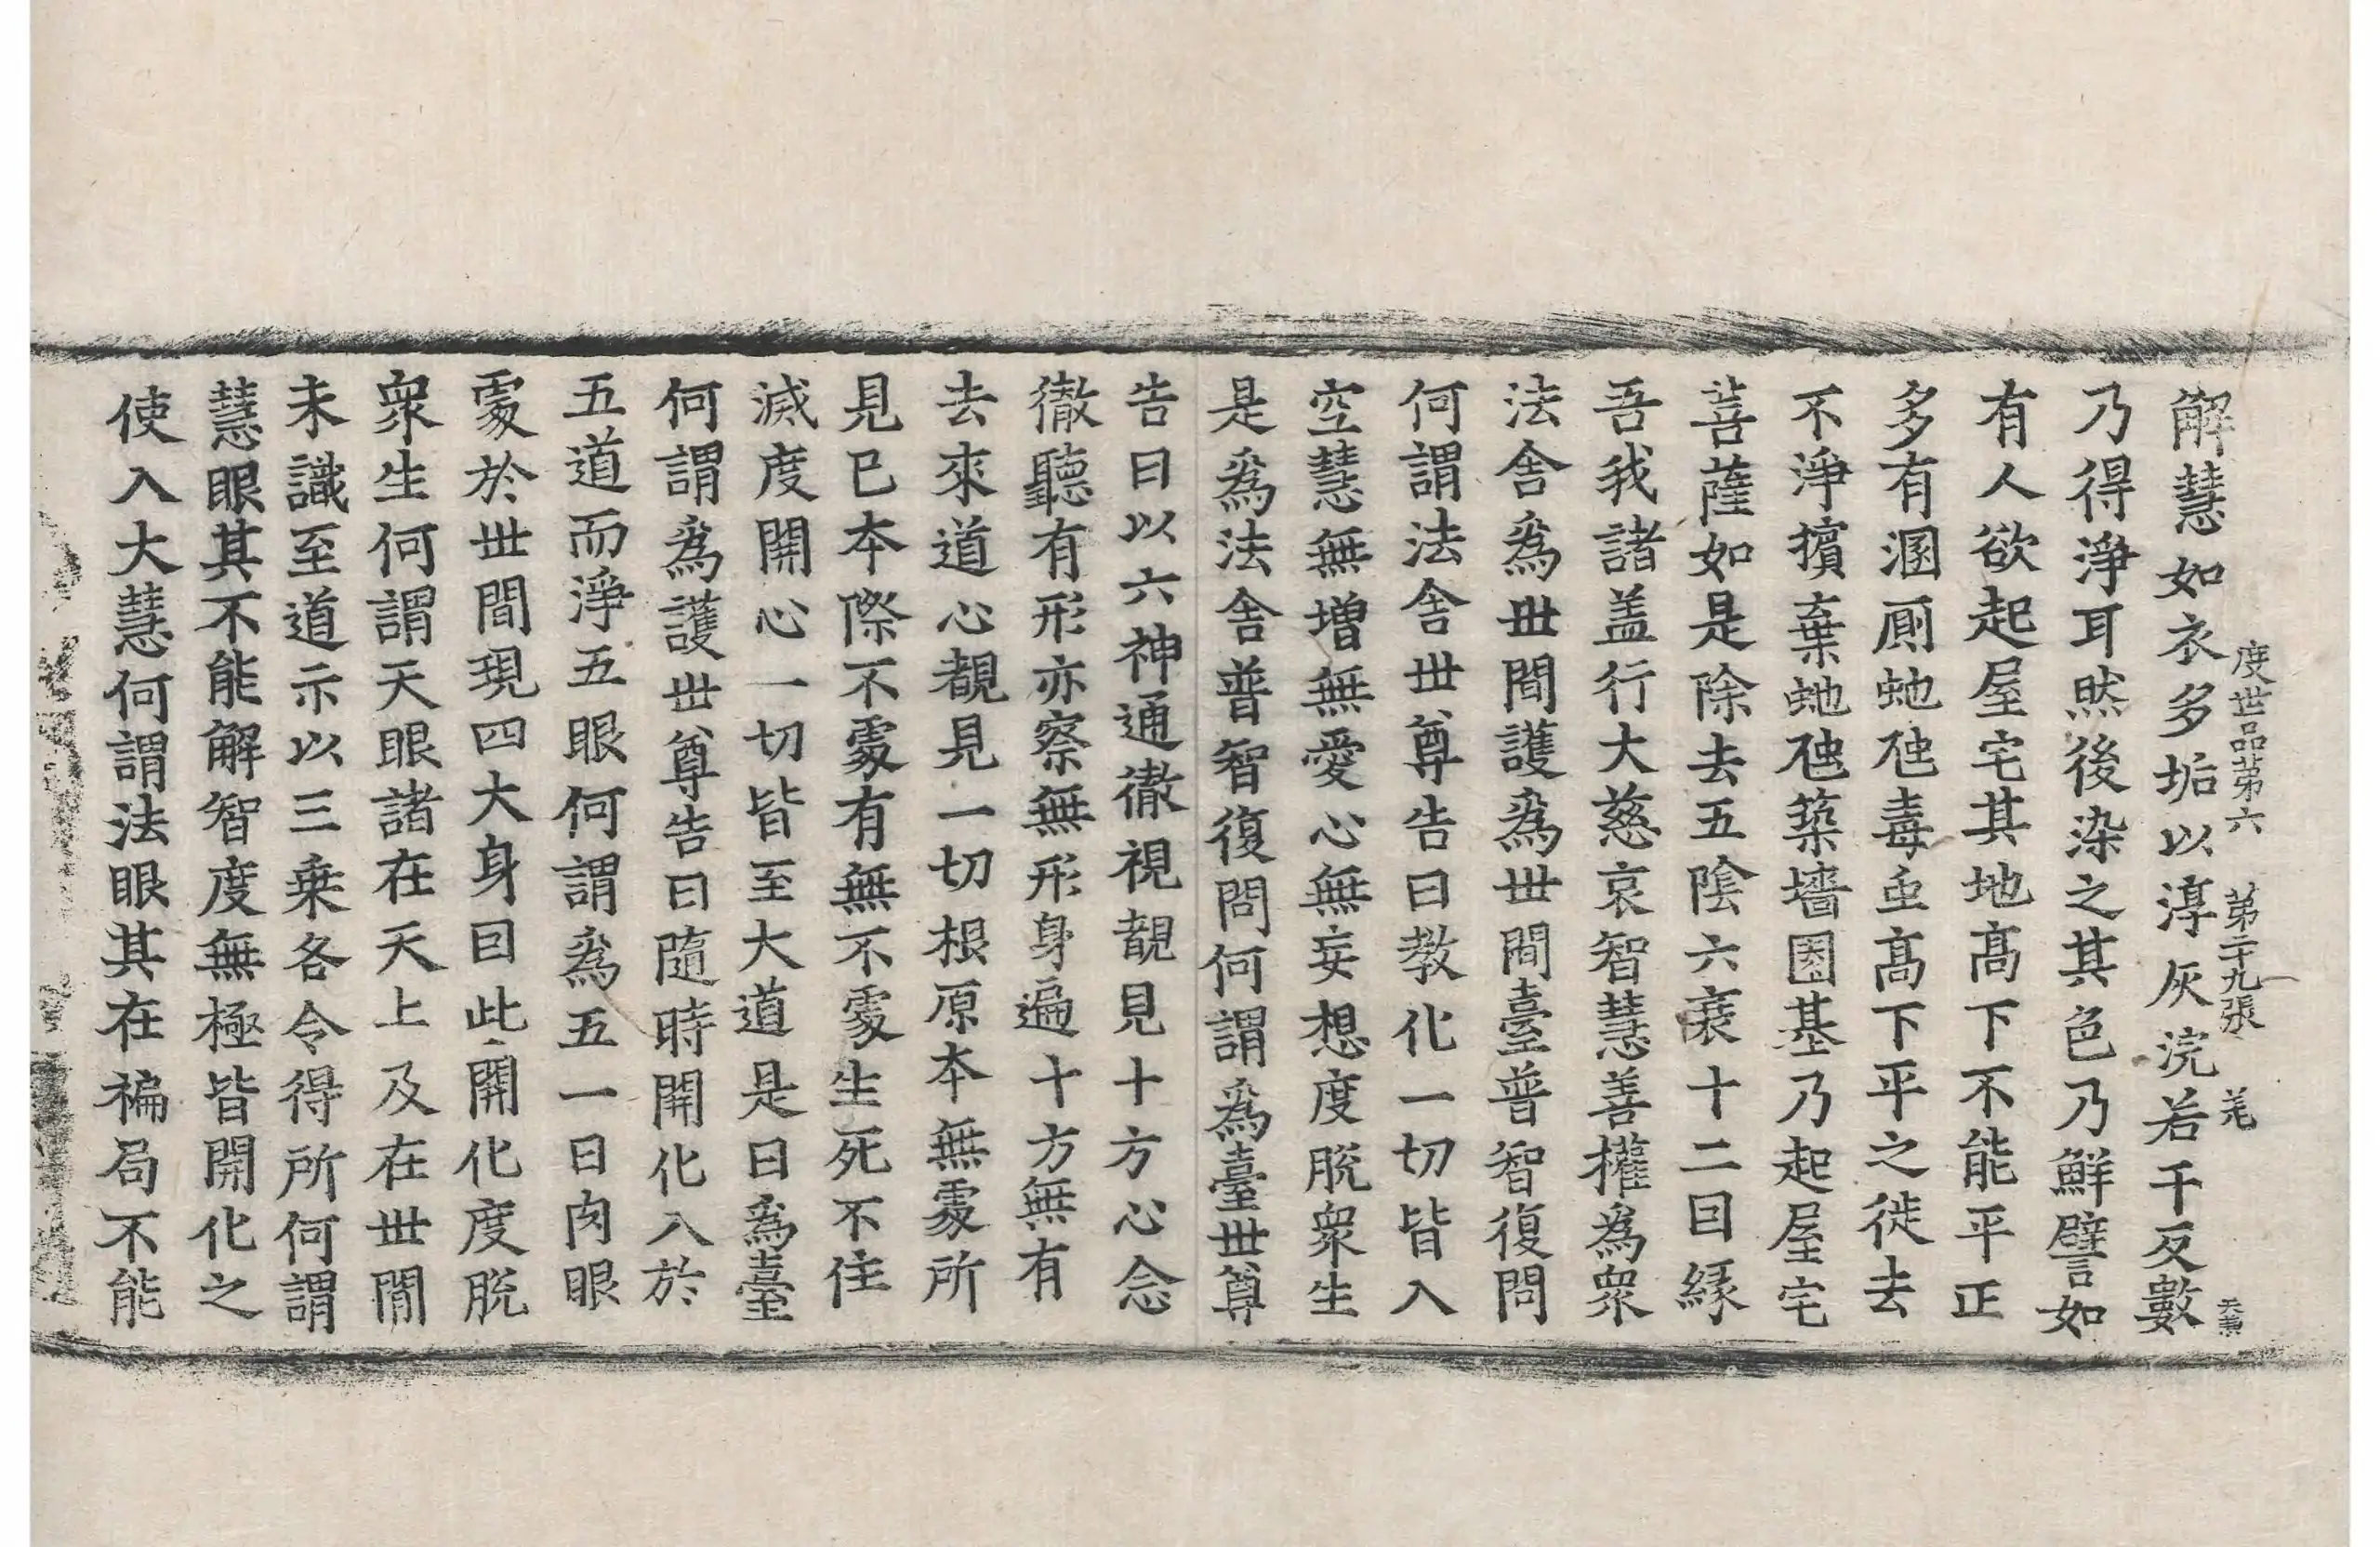 度世品第六 第二十九張 羌
解慧如衣多垢以淳灰浣若千反數
乃得淨耳然後染之其色乃鮮譬如
有人欲起屋宅其地高下不能平正
多有溷廁虵虺毒䖝高下平之徙去
不淨擯棄虵虺築墻圂基乃起屋宅
菩薩如是除去五隂六衰十二因縁
吾我諸盖行大慈哀智慧善權爲衆
法舎爲世間護爲世間臺普智復問
何謂法舎世尊告曰教化一切皆入
空慧無増無愛心無妄想度脫衆生
是爲法舎普智復問何謂爲臺世尊
告曰以六神通徹視覩見十方心念
徹聽有形亦察無形身遍十方無有
去來道心覩見一切根原本無處所
見已本際不處有無不處生死不住
滅度開心一切皆至大道是曰爲臺
何謂爲護世尊告曰隨時開化入於
五道而淨五眼何謂爲五一曰肉眼
處於世間現四大身因此開化度脫
衆生何謂天眼諸在天上及在世閒
未識至道示以三乗各令得所何謂
慧眼其不能解智度無極皆開化之
使入大慧何謂法眼其在褊局不能